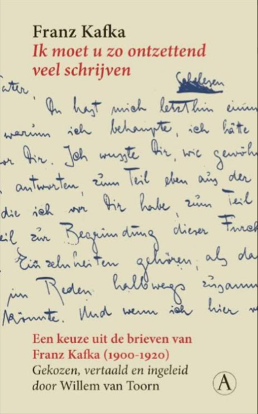 Franz Kafka
Ik moet u zo ontzettend
veel schrijven
Schelesen
ater,
Du hast mich letzthin einm
warum ich behaupte, ich hätte
or Dir. Ich wusste Dir, wie gewöhn
antworten, zum Teil eben aus der
die ich vor Dir habe, zum Teil
eil zur Begründung dieser Furch
Einzelnheiten gehören, als da
im Reden halbwegs zusamm
könnte. Und wenn ich hier
Een keuze uit de brieven van
Franz Kafka (1900-1920)
Gekozen, vertaald en ingeleid
door Willem van Toorn
A